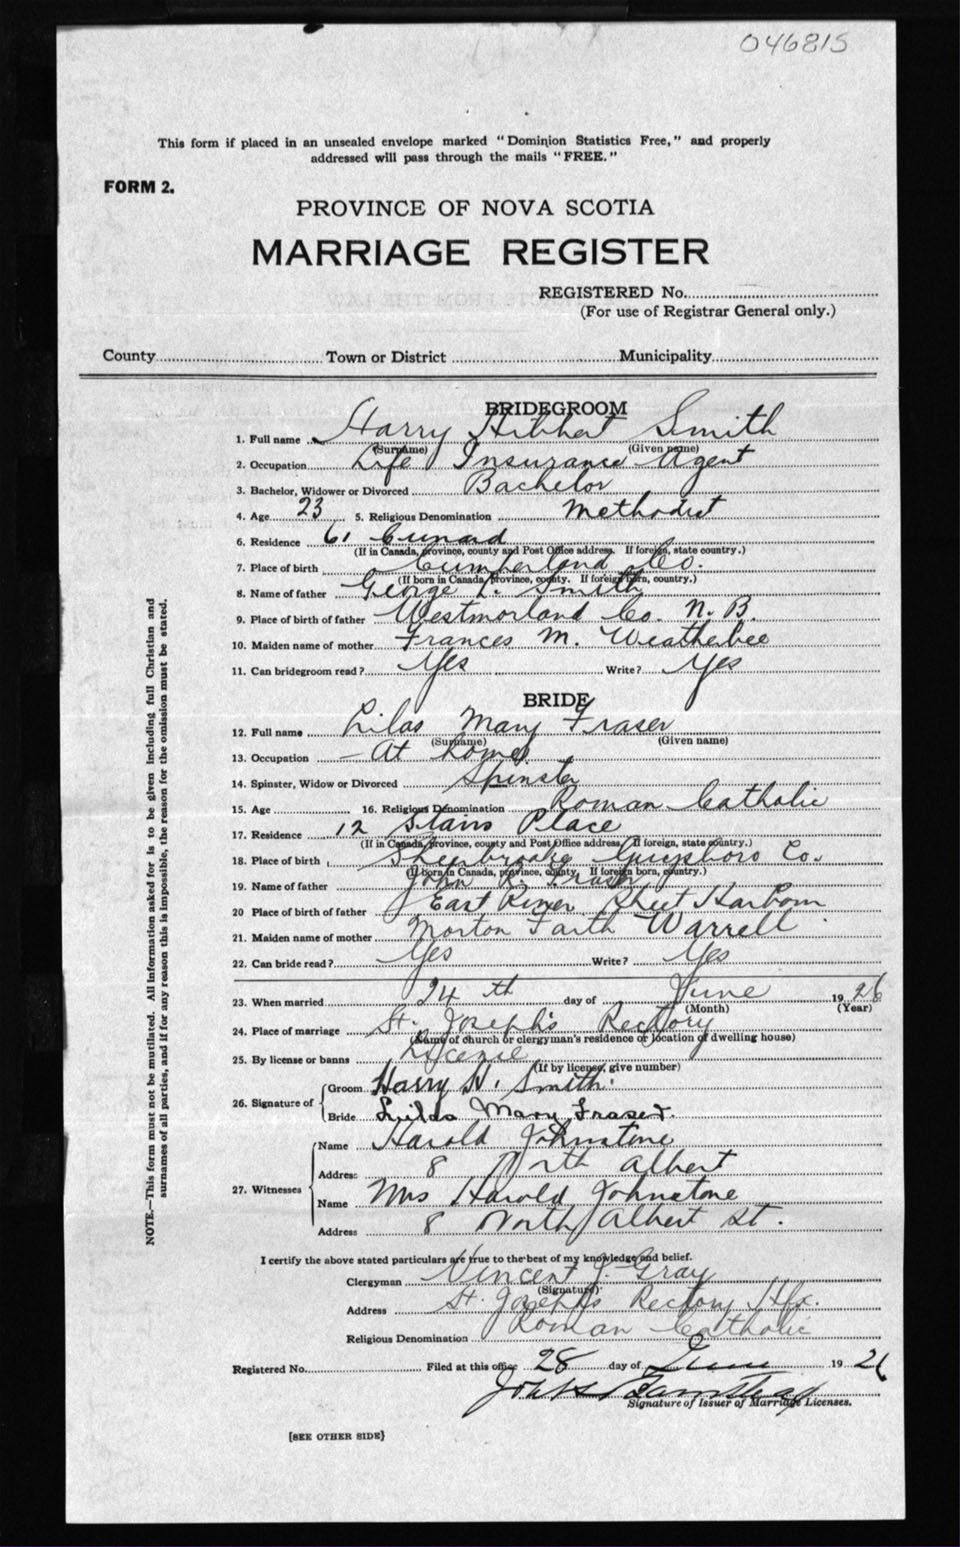 046815
This form if placed in an unsealed envelope marked "Dominion Statistics Free," and properly
addressed will pass through the mails "FREE."
FORM 2.
PROVINCE OF NOVA SCOTIA
MARRIAGE REGISTER
REGISTERED No.
(For use of Registrar General only.)
County Town or District Municipality
BRIDEGROOM
1. Full name Harry Hibbert Smith
(Surname) (Given name)
2. Occupation Life Insurance Agent
3. Bachelor, Widower or Divorced Bachelor
4. Age 23 5. Religious Denomination Methodist
6. Residence 61 Cunard
(If in Canada, province, county and Post Office address. If foreign, state country.)
7. Place of birth Cumberland Co.
(If born in Canada, province, county. If foreign born, country.)
8. Name of father George L. Smith
9. Place of birth of father Westmorland Co. N. B.
10. Maiden name of mother Frances M. Weatherbee
11. Can bridegroom read? Yes Write? Yes
BRIDE
12. Full name Lilas Mary Fraser
(Surname) (Given name)
13. Occupation At home
14. Spinster, Widow or Divorced Spinster
15. Age 16. Religious Denomination Roman Catholic
17. Residence 12 Stairs Place
(If in Canada, province, county and Post Office address, If foreign, state country.)
18. Place of birth Sherbrooke Guysboro Co.
(If born in Canada, province, county. If foreign born, country.)
19. Name of father John R. Fraser
20 Place of birth of father East River Sheet Harbour
21. Maiden name of mother Morton Faith Warrell
22. Can bride read? Yes Write? Yes
23. When married 24th day of June 1926
(Month) (Year)
24. Place of marriage St. Joseph's Rectory
(Name of church or clergyman's residence or location of dwelling house)
25. By license or banns License
(If by license, give number)
26. Signature of Groom Harry H. Smith
Bride Lilas Mary Fraser.
27. Witnesses Name Harold Johnstone
Address 8 North Albert
Name Mrs Harold Johnstone
Address 8 North Albert St.
I certify the above stated particulars are true to the best of my knowledge and belief.
Clergyman Vincent J. Gray
(Signature)
Address St. Joseph's Rectory Hfx.
Religious Denomination Roman Catholic
Registered No. Filed at this office 28 day of June 1926
Signature of Issuer of Marriage Licenses.
[SEE OTHER SIDE]
NOTE.—This form must not be mutilated. All information asked for is to be given including full Christian and
surnames of all parties, and if for any reason this is impossible, the reason for the omission must be stated.